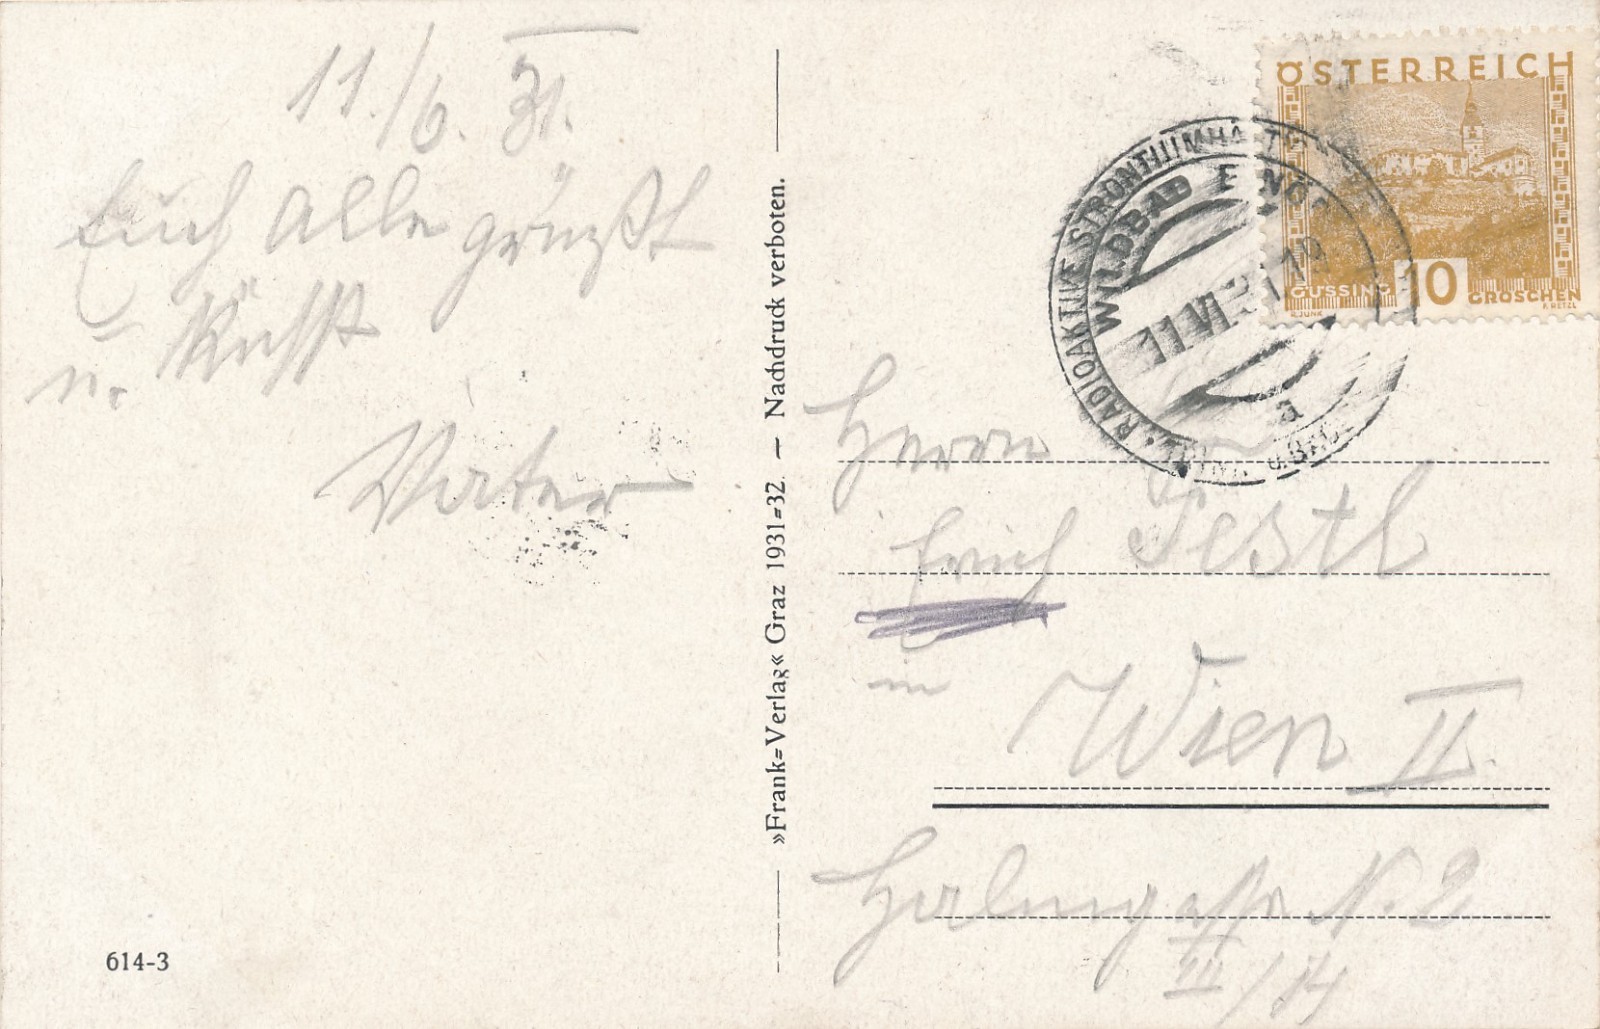 11./6. 31.
Euch alle grüßt
u. küsst
Vater
614-3
»Frank=Verlag« Graz 1931=32. — Nachdruck verboten.
ÖSTERREICH
GÜSSING 10 GROSCHEN
R.JUNK
RADIOAKTIVE STRONTIUMHALTI
WILDBAD EINÖD
11.VI.31
a
Herrn
Erich Pestl
in
Wien II.
N. 2
III/14